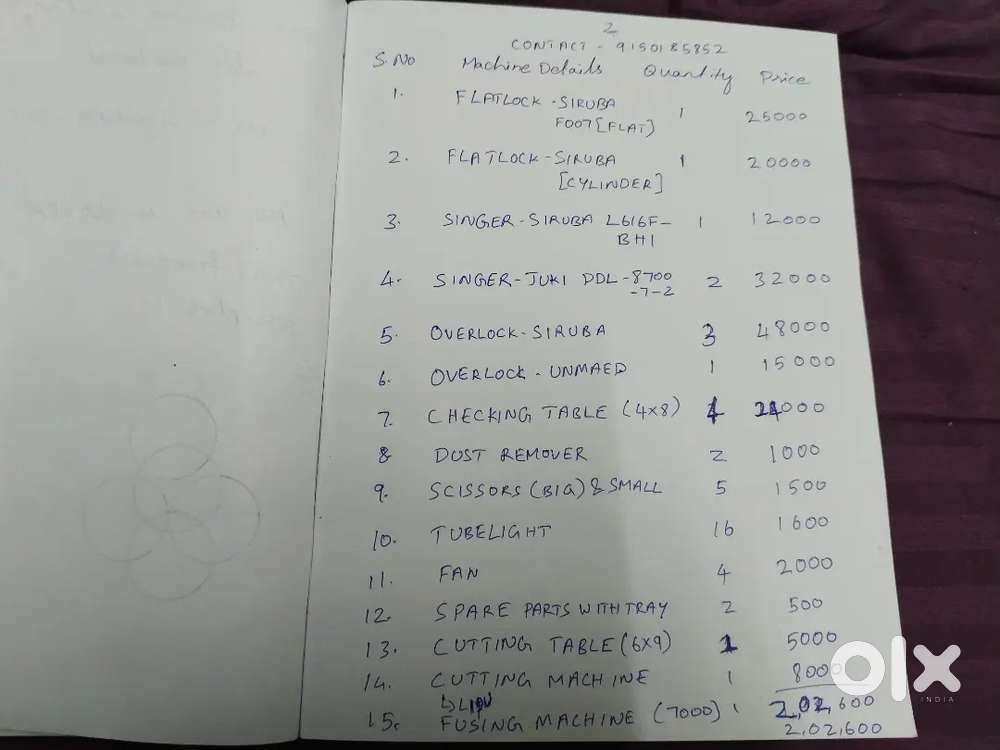 2
CONTACT - 9150185852
S.No Machine Details Quantity Price
1. FLATLOCK - SIRUBA 1 25000
F007 [FLAT)
2. FLATLOCK - SIRUBA 1 20000
[CYLINDER]
3. SINGER - SIRUBA L616F- 1 12000
BH1
4. SINGER - JUKI DDL - 8700 2 32000
-7-2
5. OVERLOCK - SIRUBA 3 48000
6. OVERLOCK - UNMAED 1 15000
7. CHECKING TABLE (4x8) 000
8 DUST REMOVER 2 1000
9. SCISSORS (BIG) & SMALL 5 1500
10. TUBELIGHT 16 1600
11. FAN 4 2000
12. SPARE PARTS WITH TRAY 2 500
13. CUTTING TABLE (6x9) 1 5000
14. CUTTING MACHINE 1 8000
15. FUSING MACHINE (7000) 1 2,02,600
2,02,600
olx
INDIA